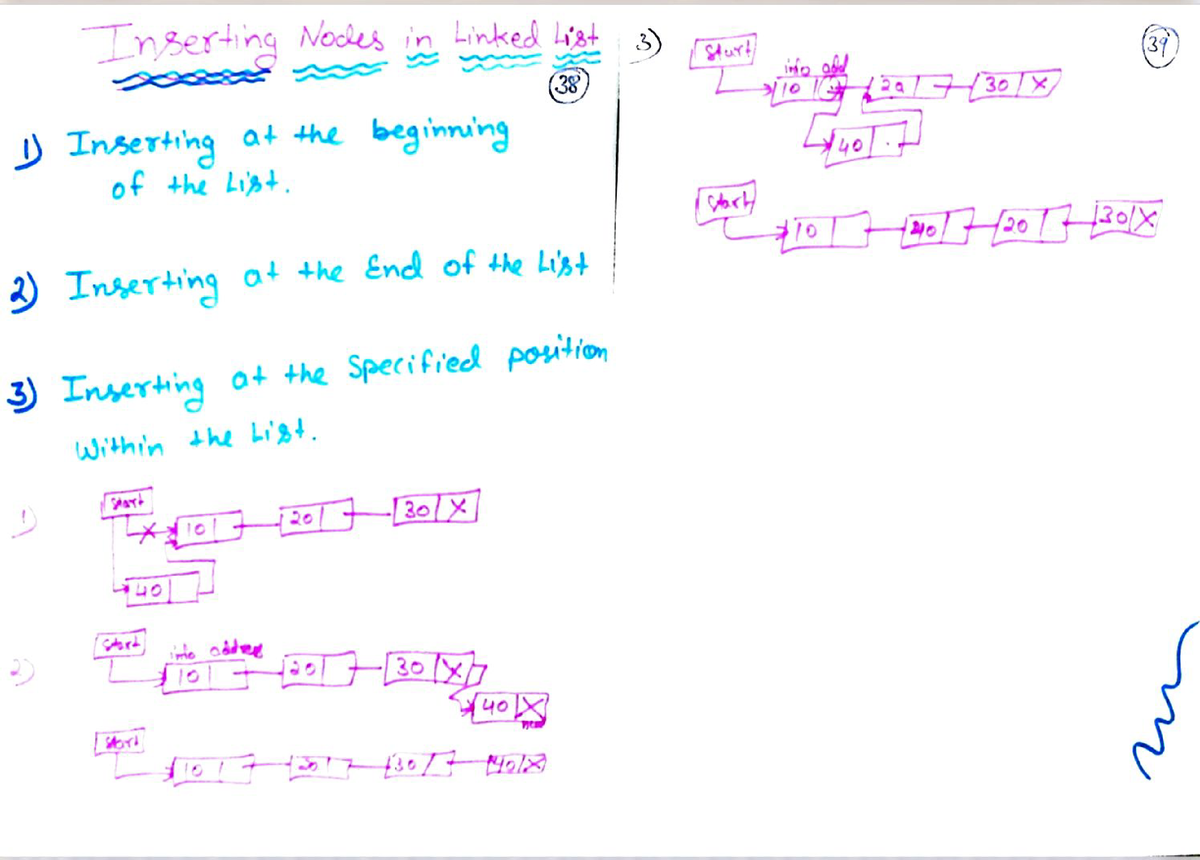 Inserting Nodes in Linked List
38
1) Inserting at the beginning
of the List.
2) Inserting at the End of the List
3) Inserting at the Specified position
Within the List.
1)
Start
10 20 30 X
40
2)
Start
info address
10 20 30 X
40 X
Start
10 20 30 40 X
3)
39
Start
info add
10 20 30 X
40
Start
10 40 20 30 X